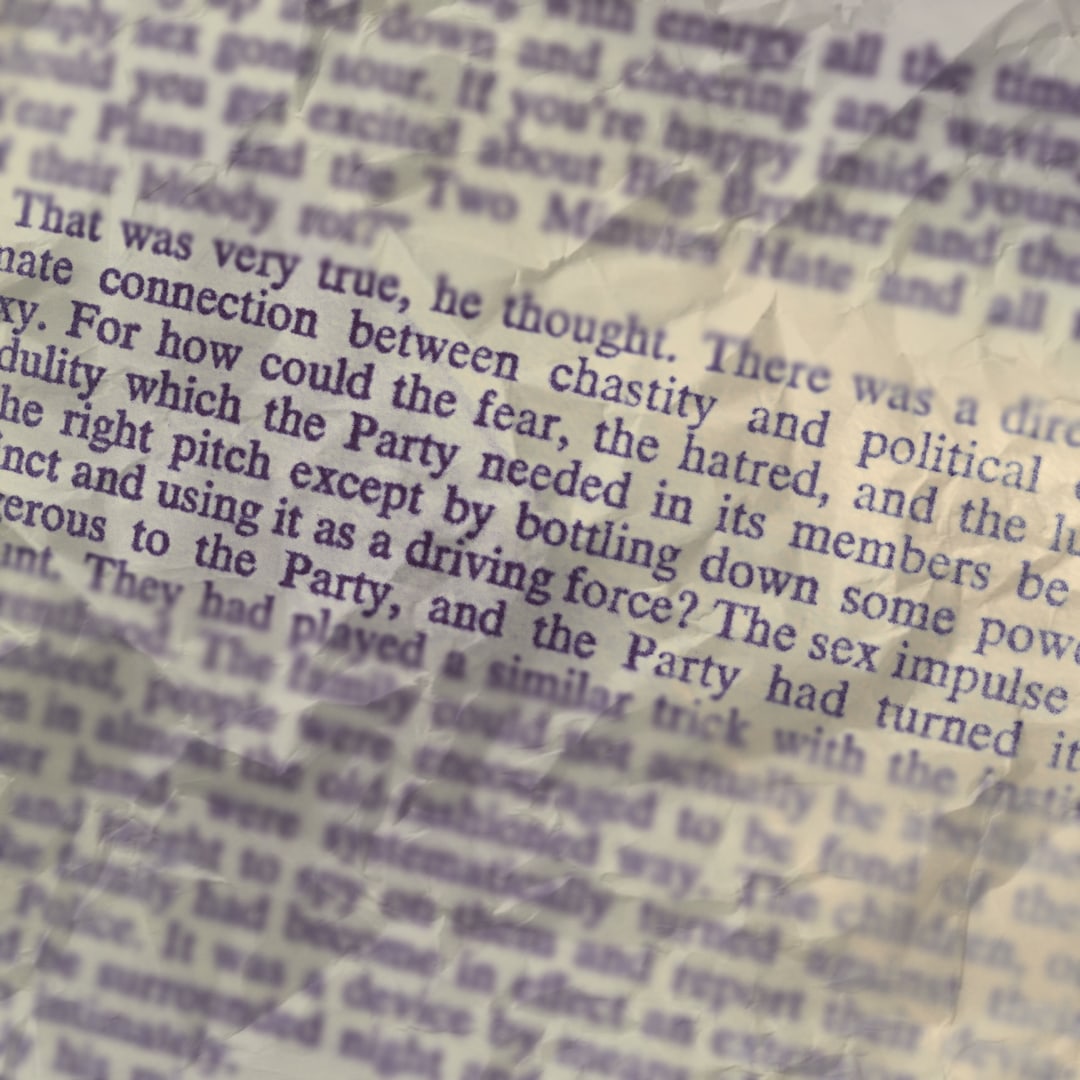 with energy all the time
down and cheering and waving
sex gone sour. If you're happy inside yours
should you get excited about Big Brother and the
Plans and the Two Minutes Hate and all
their bloody rot?"
That was very true, he thought. There was a dire
mate connection between chastity and political
xy. For how could the fear, the hatred, and the lu
dulity which the Party needed in its members be
he right pitch except by bottling down some powe
inct and using it as a driving force? The sex impulse
gerous to the Party, and the Party had turned it
unt. They had played a similar trick with the
The family could not actually be
people were encouraged to be fond of
in almost the old-fashioned way. The children, on
hand, were systematically turned against their
and taught to spy on them and report their
family had become in effect an
Police. It was a device by means
surrounded night
intimately.
his